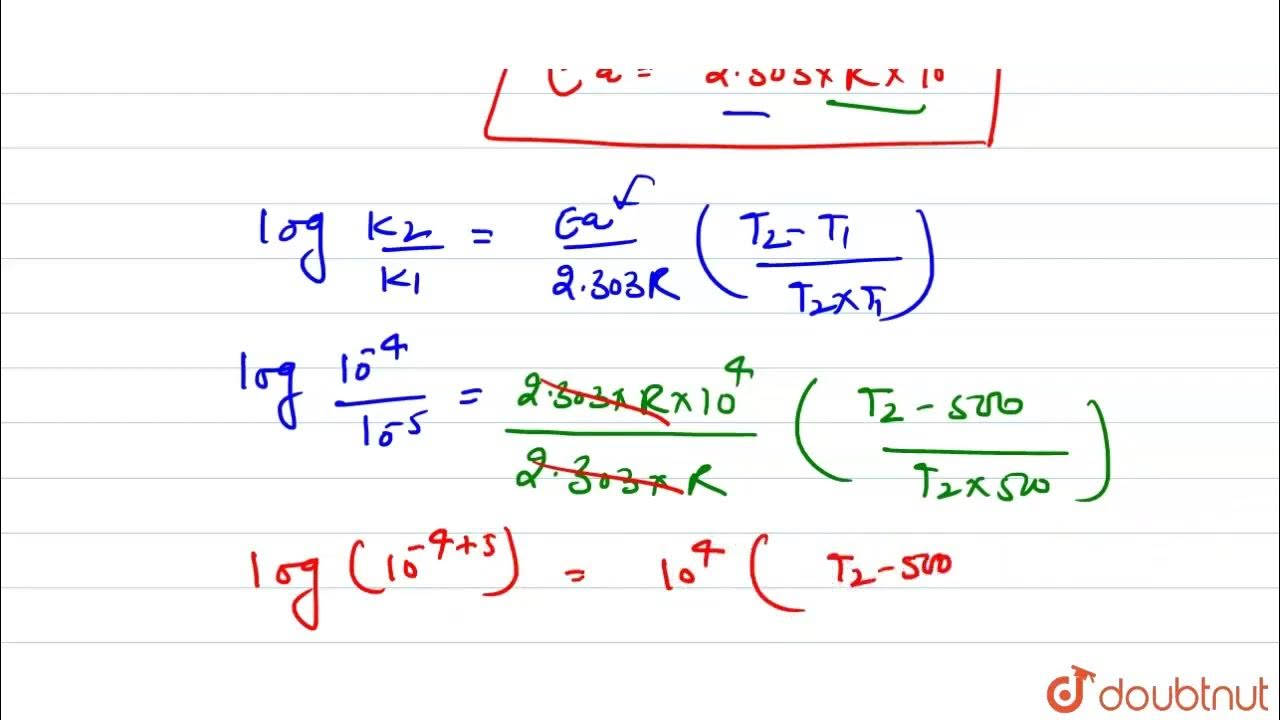 Ea = 2.303 x R x 10
log K2/K1 = Ea/2.303R (T2 - T1/T2 x T1)
log 10^-4/10^-5 = 2.303 x R x 10^4/2.303 x R (T2 - 500/T2 x 500)
log (10^-4+5) = 10^4 ( T2 - 500
doubtnut